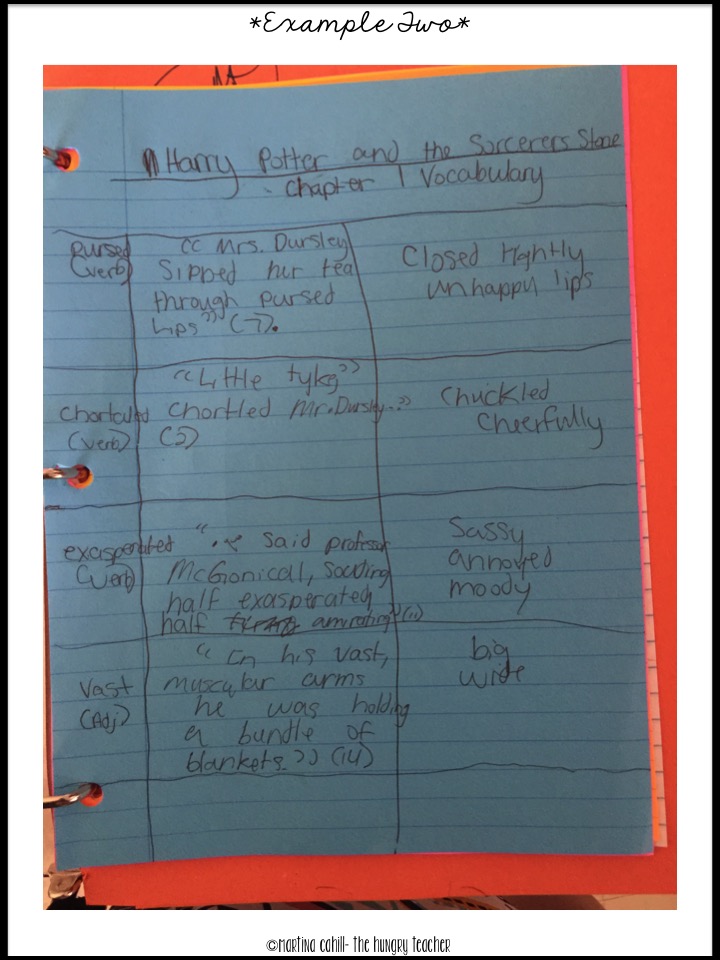 *Example Two*
Harry Potter and the Sorcerers Stone
Chapter 1 Vocabulary
Pursed
(verb)
"Mrs. Dursley
Sipped her tea
through pursed
lips" (7).
Closed tightly
unhappy lips
chortled
(verb)
"Little tyke"
chortled Mr. Dursley..."
(2)
Chuckled
Cheerfully
exasperated
(verb)
"... said professor
McGonicall, souding
half exasperated,
half amirating" (11)
Sassy
annoyed
moody
Vast
(Adj)
"In his vast,
muscular arms
he was holding
a bundle of
blankets." (14)
big
wide
©Martina Cahill- the hungry teacher